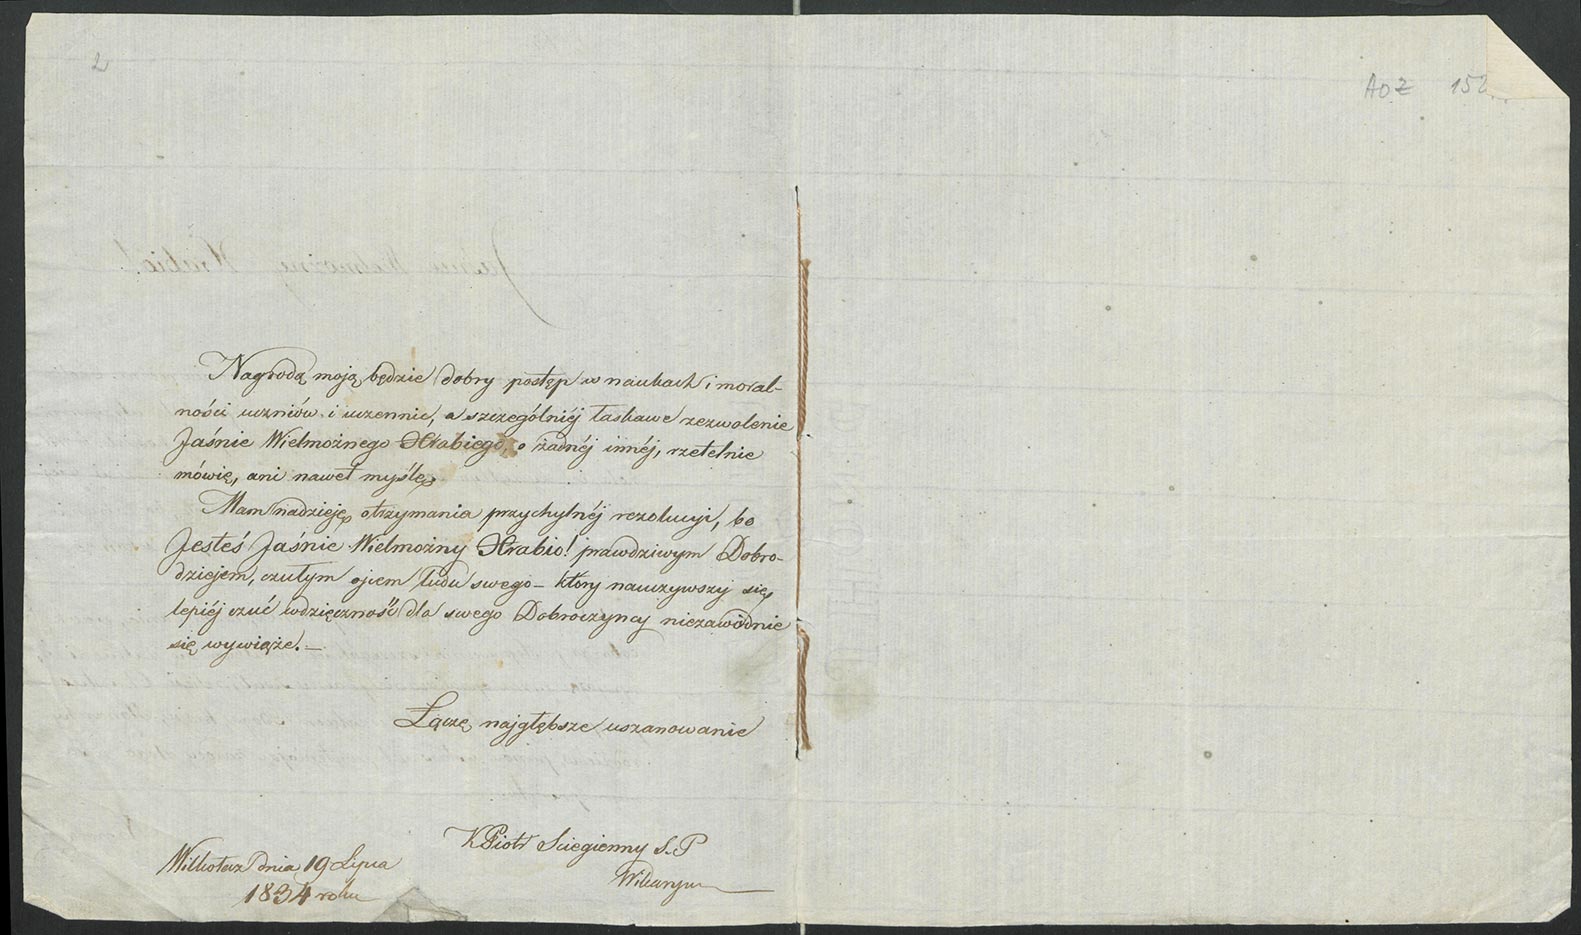 2
AOZ 152
Nagrodą moją będzie dobry postęp w naukach i moral-
ności uczniów i uczennic, a szczególniéj łaskawe zezwolenie
Jaśnie Wielmożnego Hrabiego, o żadnéj innéj, rzetelnie
mówię, ani nawet myślę,
Mam nadzieję otrzymania przychylnéj rezolucyi, bo
Jesteś Jaśnie Wielmożny Hrabio! prawdziwym Dobro-
dziejem, czułym ojcem ludu swego – który nauczywszy się
lepiéj czuć wdzięczność dla swego Dobroczyńcy niezawodnie
się wywiąże. –
Łączę najgłębsze uszanowanie
X Piotr Sciegienny S. P
Wikaryusz
Wilkołaz dnia 19 Lipca
1834 roku